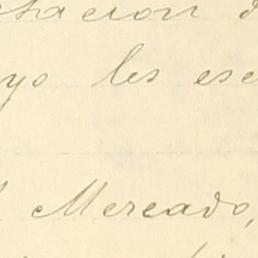 tacion d
yo les esc
Mercado,